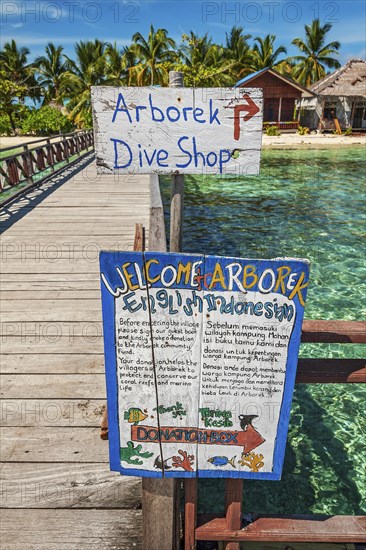 Arborek
Dive Shop
WELCOME TO ARBOREK
English Indonesian
Before entering the village
please sign our guest book
and kindly make a donation
to the Arborek Community
Fund
Your donation helps the
villagers of Arborek to
protect and preserve our
coral reefs and marine
life
Sebelum memasuki
kampung Mohon
isi buku tamu kami dan
donasi untuk kepentingan
warga kampung Arborek
Donasi anda membantu
warga Kampung Arborek
Untuk menjaga dan memelihara
biota Laut di Arborek
Thank
You
Terima
Kasih
DONATION BOX